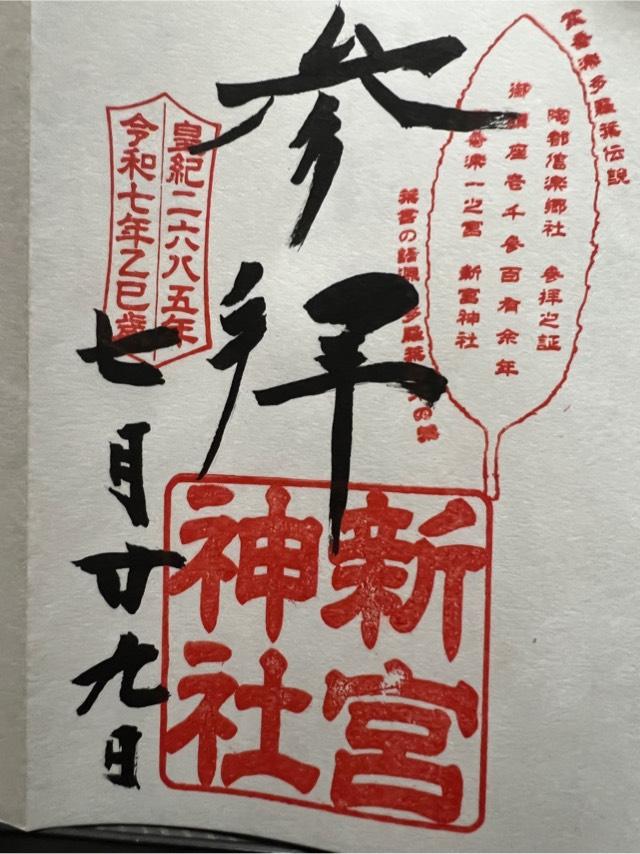 紫香楽多羅葉伝説
陶都信楽郷社 參拝之証
御鎮座壱千參百有余年
香楽一之宮 新宮神社
葉書の語源 多羅葉 の葉
参拝
新宮
神社
皇紀二六八五年
令和七年乙巳歳
七月廿九日